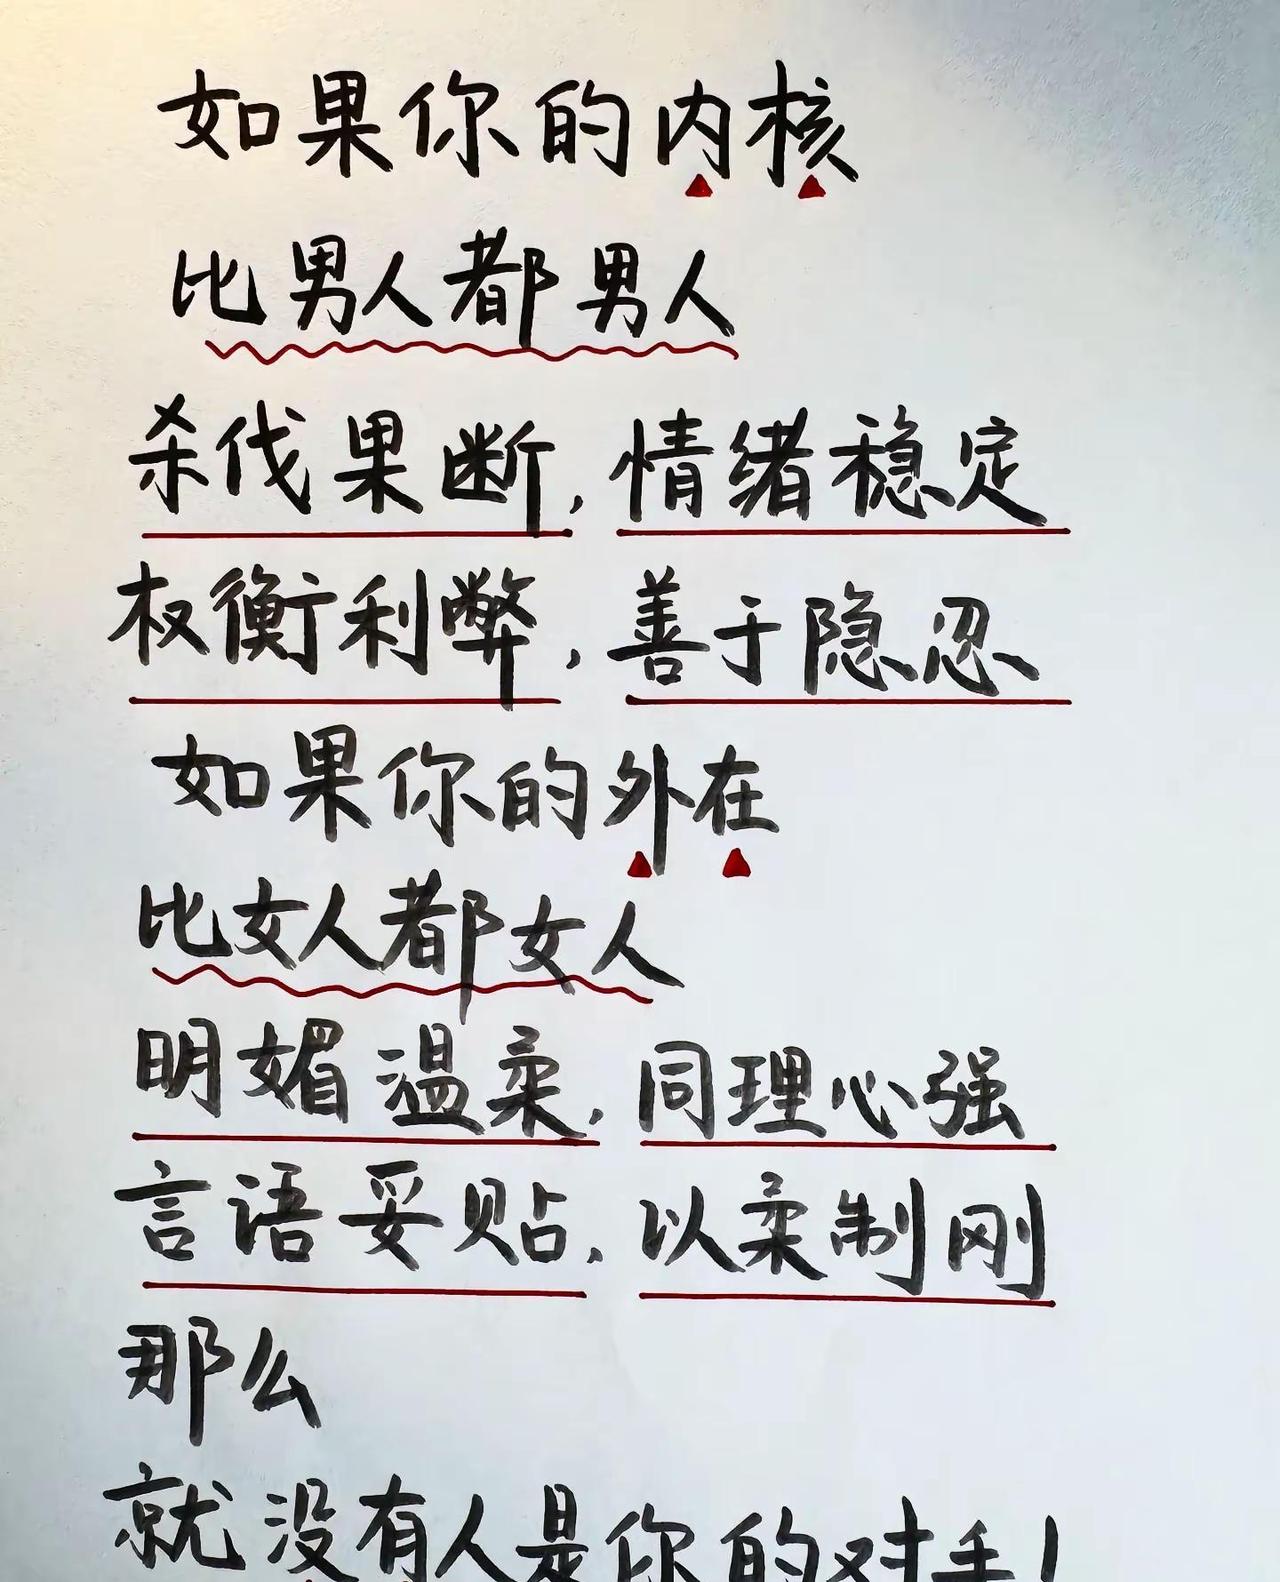 如果你的内核
比男人都男人
杀伐果断,情绪稳定
权衡利弊,善于隐忍
如果你的外在
比女人都女人
明媚温柔,同理心强
言语妥贴,以柔制刚
那么
就没有人是你的对手!